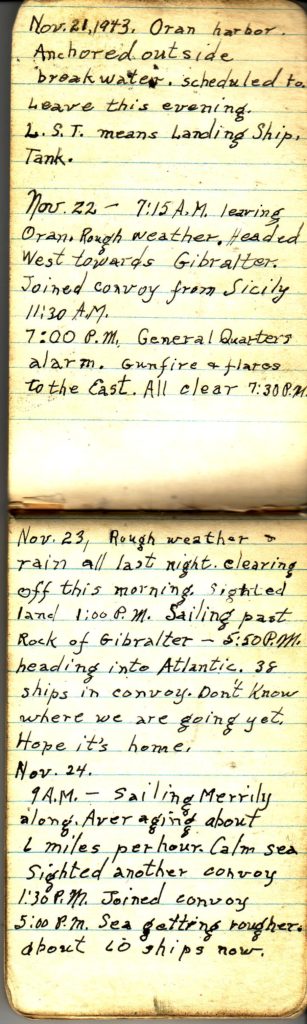 Nov. 21, 1943. Oran harbor.
Anchored outside
breakwater. scheduled to
Leave this evening.
L.S.T. means Landing Ship,
Tank.
Nov. 22 - 7:15 A.M. leaving
Oran. Rough weather. Headed
West towards Gibralter.
Joined convoy from Sicily
11:30 A.M.
7:00 P.M. General Quarters
alarm. Gunfire & flares
to the East. All clear 7:30 P.M.
Nov. 23, Rough weather &
rain all last night. clearing
off this morning. Sighted
land 1:00 P.M. Sailing past
Rock of Gibralter - 5:50 P.M.
heading into Atlantic. 38
ships in convoy. Don't know
where we are going yet.
Hope it's home.
Nov. 24.
9 A.M. - Sailing Merrily
along. Averaging about
6 miles per hour. Calm sea
Sighted another convoy
1:30 P.M. Joined convoy
5:00 P.M. Sea getting rougher.
about 60 ships now.